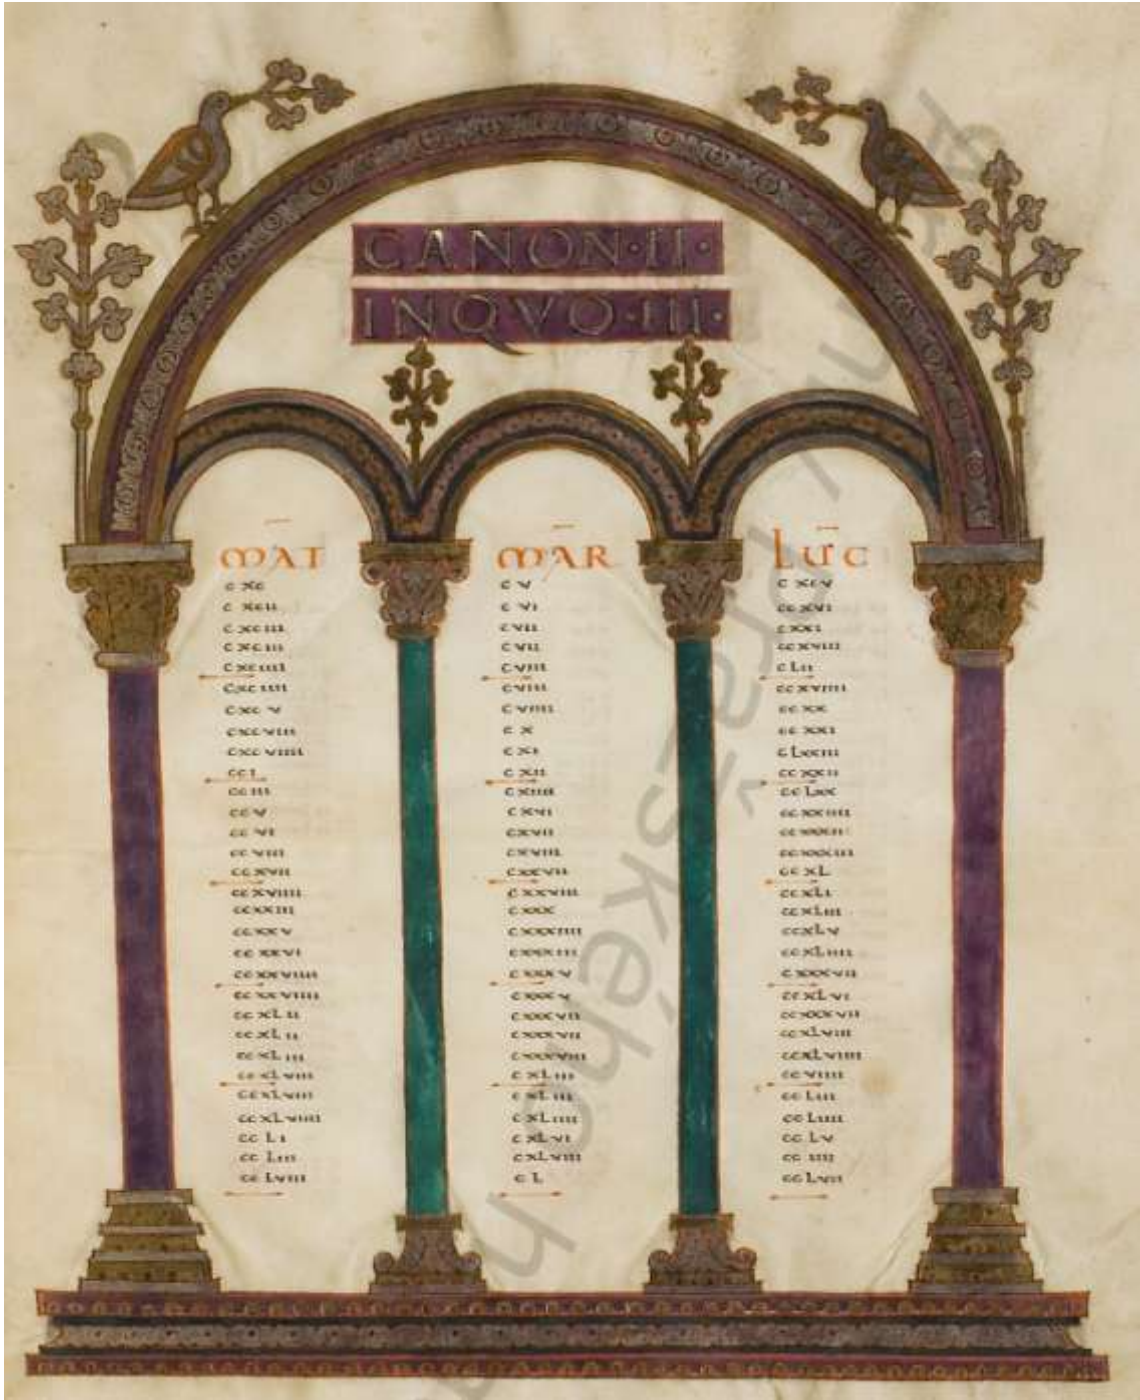 CANON·II·
INQVO·III·
MAT
cxc
cxcii
cxciii
cxciii
cxciiii
cxciiii
cxcv
cxcviii
cxcviiii
cci
cciii
ccv
ccvi
ccviii
ccxvii
ccxviiii
ccxxiii
ccxxv
ccxxvi
ccxxviiii
ccxxviiii
ccxlii
ccxlii
ccxliii
ccxlviii
ccxlviii
ccxlviiii
ccli
ccliii
cclviii
MAR
cv
cvi
cvii
cvii
cviii
cviii
cviiii
cx
cxi
cxii
cxiiii
cxvi
cxvii
cxviii
cxxvii
cxxviii
cxxx
cxxxiiii
cxxxiii
cxxxv
cxxxv
cxxxvii
cxxxvii
cxxxviii
cxliii
cxliii
cxliiii
cxlvi
cxlviii
cl
Luc
cxcv
ccxvi
cxxi
ccxviii
clii
ccxviiii
ccxx
ccxxi
clxxiii
ccxxii
cclxx
ccxxiiii
ccxxxii
ccxxxiii
ccxl
ccxli
ccxliii
ccxlv
ccxliiii
cxxxvii
ccxlvi
ccxxxvii
ccxlviii
ccxlviiii
ccviiii
ccliii
ccliiii
cclv
cciiii
cclvii
pražského